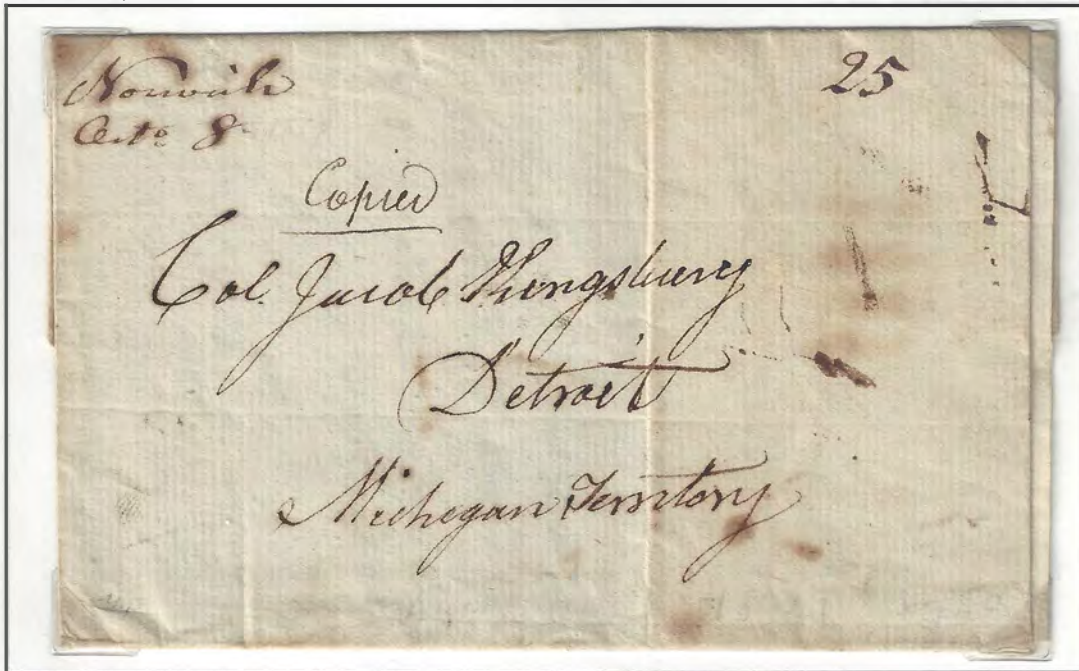 Norwich
Octo 8
25
Copied
Col. Jacob Kingsbury
Detroit
Michegan Territory